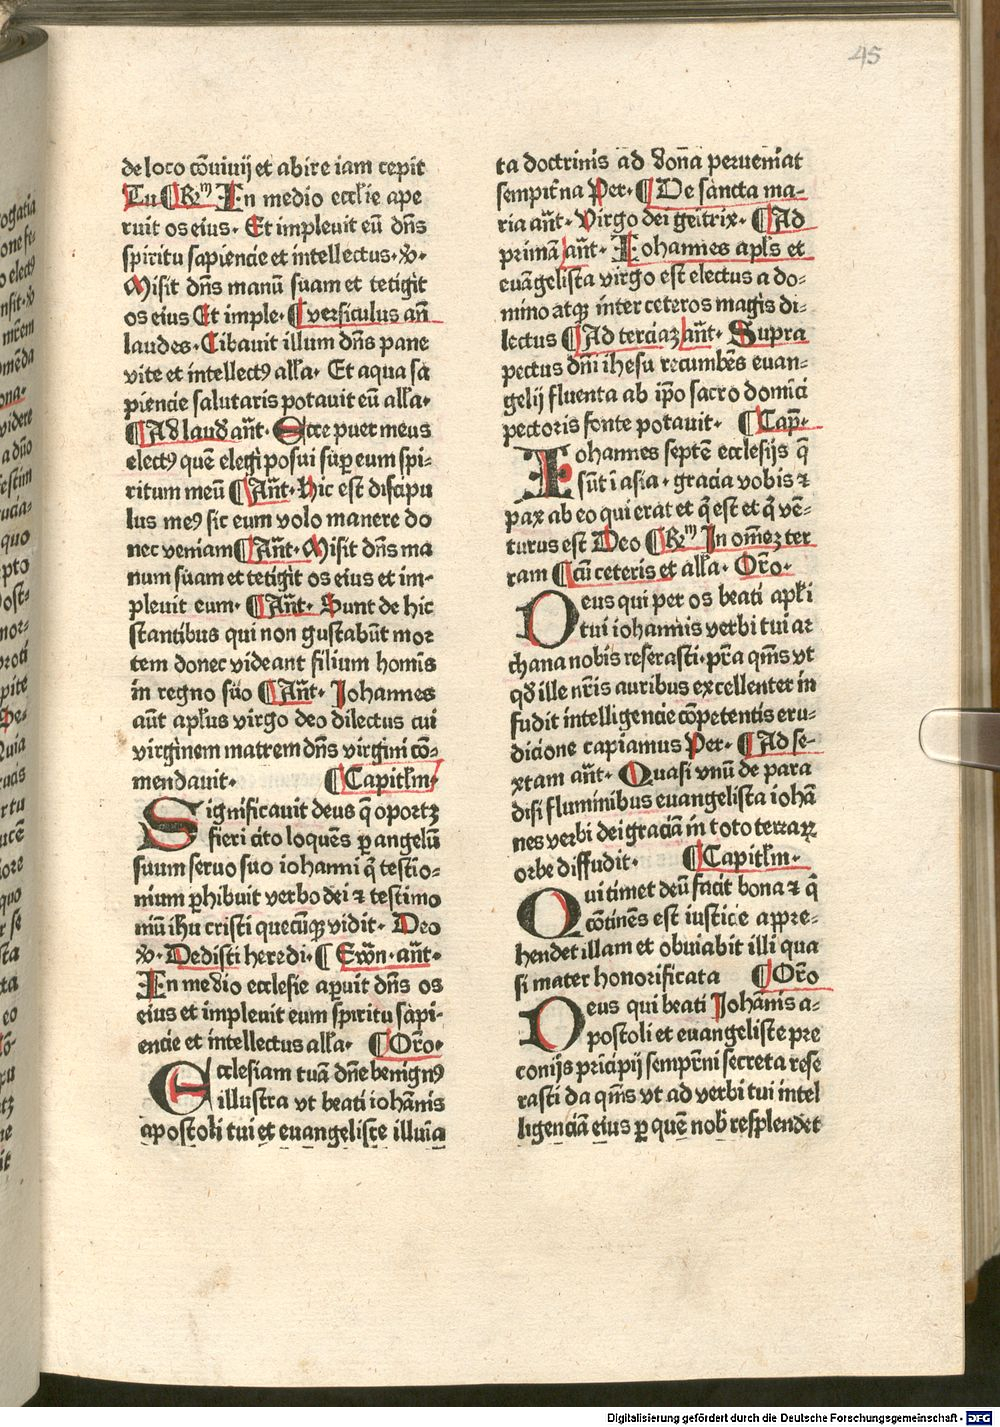 45
de loco cōuiuij et abire iam cepit
Tu ¶ Rm In medio eccl̄ie ape
ruit os eius· Et impleuit eū dn̄s
spiritu sapiencie et intellectus· v̄·
Misit dn̄s manū suam et tetigit
os eius Et imple· ¶ versiculus an̄
laudes· Cibauit illum dn̄s pane
vite et intellectꝰ all'a· Et aqua sa
piencie salutaris potauit eū all'a·
¶ Ad laud an̄t· Ecce puer meus
electꝰ quē elegi posui suꝑ eum spi⸗
ritum meū ¶ An̄t· Hic est discipu
lus meꝰ sic eum volo manere do
nec veniam ¶ An̄t· Misit dn̄s ma
num suam et tetigit os eius et im⸗
pleuit eum· ¶ An̄t· Sunt de hic
stantibus qui non gustabūt mor
tem donec videant filium homīs
in regno suo ¶ An̄t· Johannes
aūt apl̄us virgo deo dilectus cui
virginem matrem dn̄s virgini cō⸗
mendauit· ¶ Capitl̄m·
Significauit deus q̄ oportꝫ
fieri cito loquēs ꝑ angelū
suum seruo suo iohanni q̄ testio⸗
nium ꝑhibuit verbo dei ⁊ testimo
niū ih̄u cristi quecūqꝫ vidit· Deo
v̄· Dedisti heredi· ¶ Ew̄n· an̄t·
In medio ecclesie aꝑuit dn̄s os
eius et impleuit eum spiritu sapi⸗
encie et intellectus all'a· ¶ Or̄o·
Ecclesiam tuā dn̄e benignꝰ
illustra vt beati iohānis
apostoli tui et euangeliste illuīa
ta doctrinis ad dona perueniat
sempit̄na Per· ¶ De sancta ma⸗
ria an̄t· Virgo dei geitrix· ¶ Ad
primā an̄t· Johannes apl̄s et
euāgelista virgo est electus a do⸗
mino atqꝫ inter ceteros magis di⸗
lectus ¶ Ad terciaꝫ an̄t· Supra
pectus dn̄i ihesu recumbēs euan⸗
gelij fluenta ab ip̄o sacro domīci
pectoris fonte potauit· ¶ Cap̄·
Johannes septē ecclesijs q̄
sūt ī asia· gracia vobis ⁊
pax ab eo qui erat et q̄ est et q̄ vē⸗
turus est Deo ¶ Rm In om̄eꝫ ter
ram ¶ cū ceteris et all'a· Or̄o·
Deus qui per os beati apl̄i
tui iohannis verbi tui ar
chana nobis reserasti· pr̄a qm̄s vt
qd̄ ille nr̄is auribus excellenter in
fudit intelligencie cōpetentis eru⸗
dicione capiamus Per· ¶ Ad se⸗
xtam an̄t· Quasi vnū de para
disi fluminibus euangelista iohā
nes verbi dei graciā in toto terraꝝ
orbe diffudit· ¶ Capitl̄m·
Qui timet deū facit bona ⁊ q̄
cōtinēs est iusticie appre⸗
hendet illam et obuiabit illi qua
si mater honorificata ¶ Or̄o
Deus qui beati Johānis a⸗
postoli et euangeliste pre
conijs prīcipij semp̄rni secreta rese
rasti da qm̄s vt ad verbi tui intel
ligenciā eius ꝑ quē nob̄ resplendet
Digitalisierung gefördert durch die Deutsche Forschungsgemeinschaft - DFG